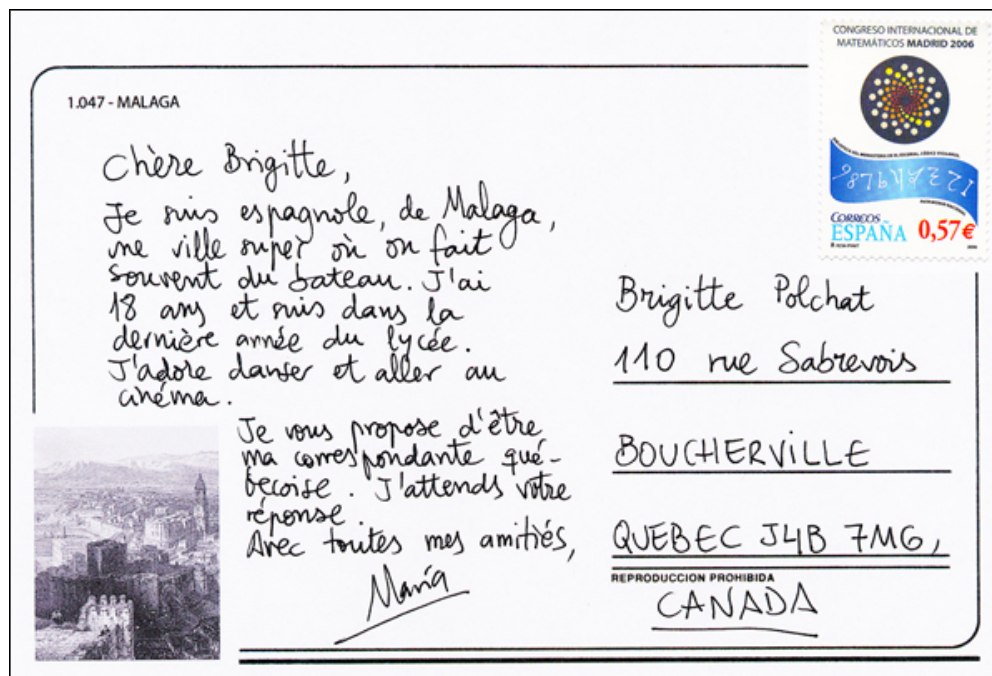 CONGRESO INTERNACIONAL DE
MATEMÁTICOS MADRID 2006
1.047 - MALAGA
CORREOS
ESPAÑA 0,57€
Chère Brigitte,
Je suis espagnole, de Malaga,
une ville super où on fait
souvent du bateau. J'ai
18 ans et suis dans la
dernière année du lycée.
J'adore danser et aller au
cinéma.
Je vous propose d'être
ma correspondante qué-
bécoise. J'attends votre
réponse.
Avec toutes mes amitiés,
María
Brigitte Polchat
110 rue Sabrevois
BOUCHERVILLE
QUEBEC J4B 7M6,
REPRODUCCION PROHIBIDA
CANADA